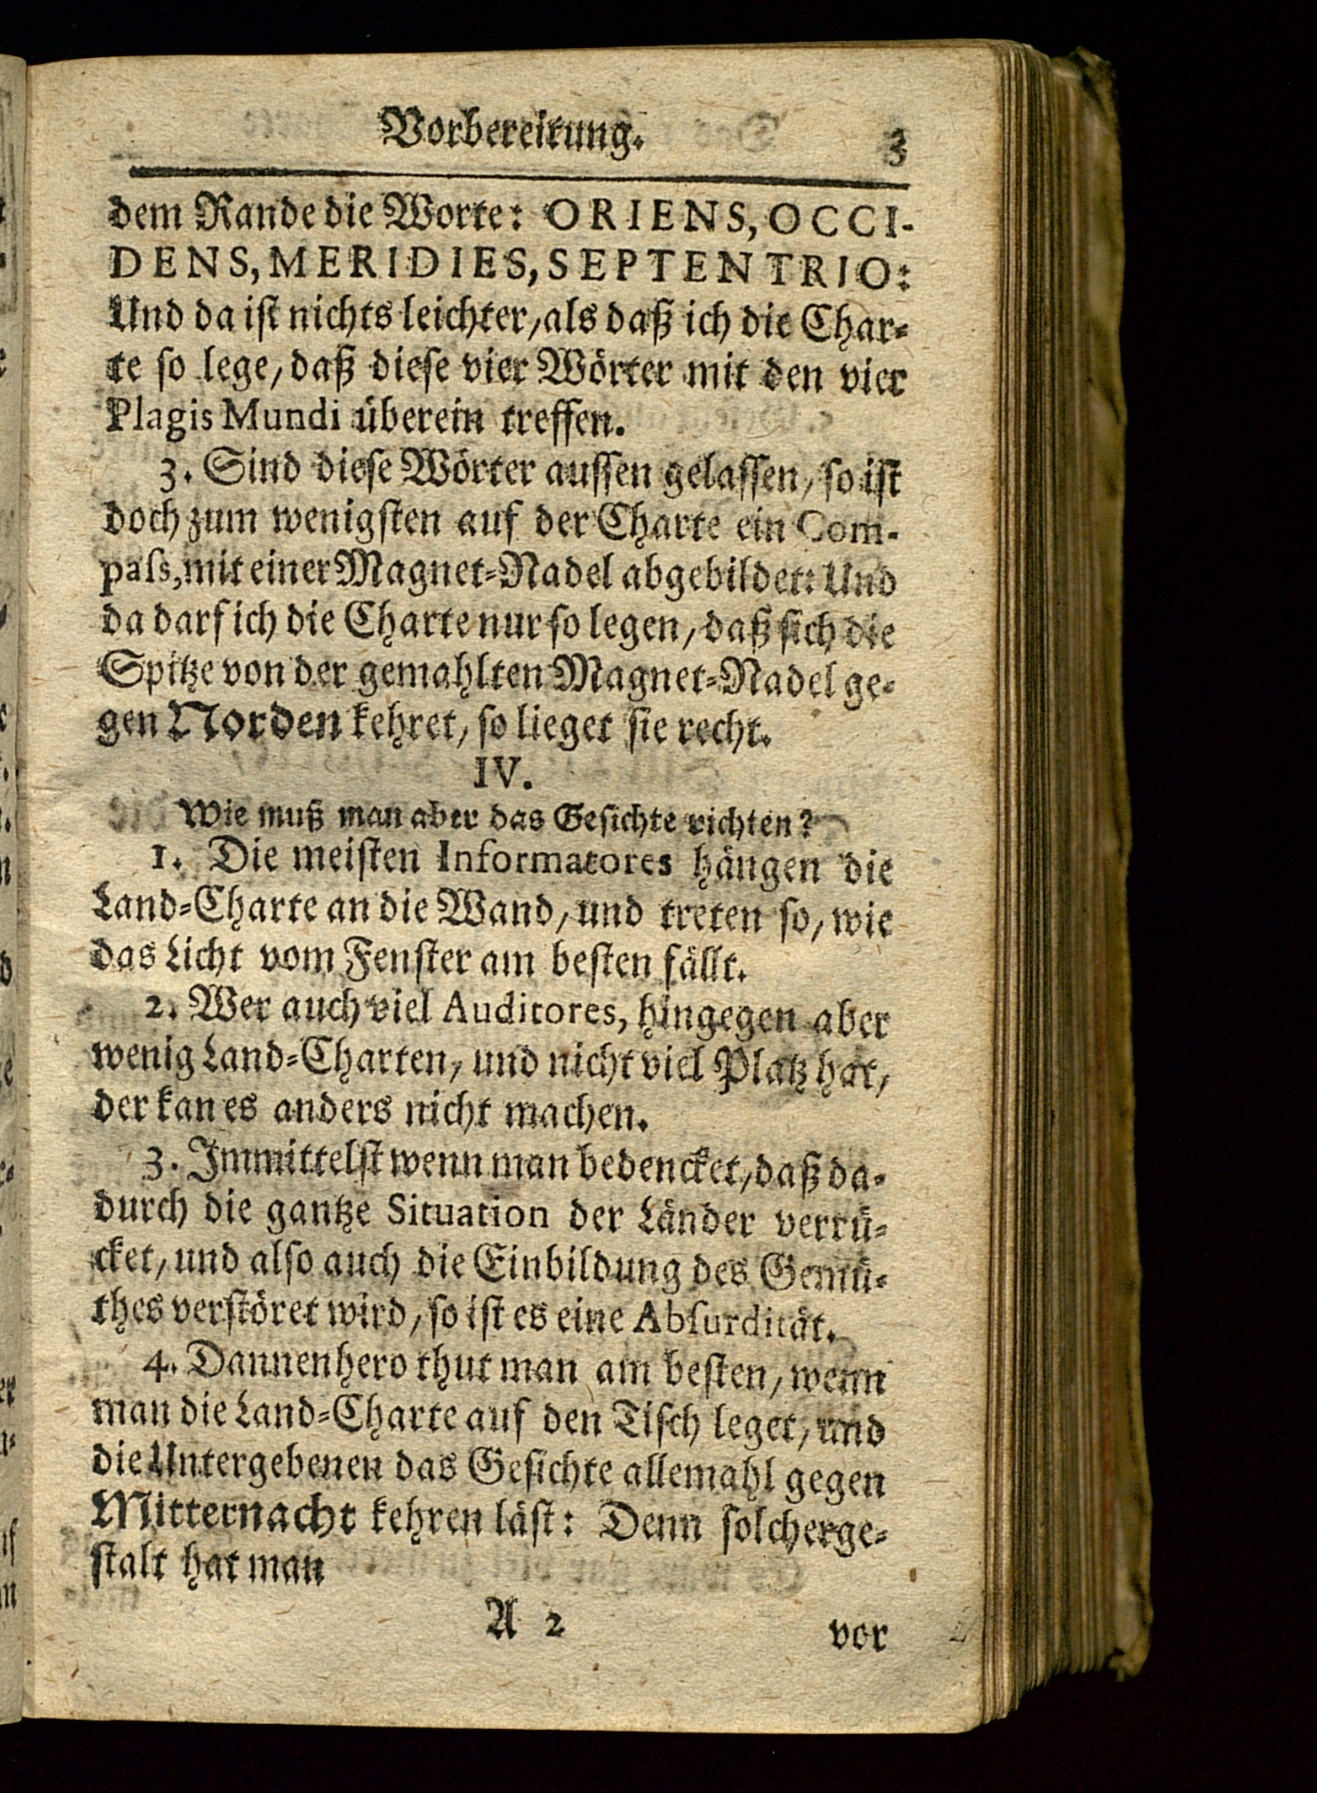 Vorbereitung. 3
dem Rande die Worte: ORIENS, OCCI-
DENS, MERIDIES, SEPTENTRIO:
Und da ist nichts leichter, als daß ich die Char-
te so lege, daß diese vier Wörter mit den vier
Plagis Mundi überein treffen.
3. Sind diese Wörter aussen gelassen, so ist
doch zum wenigsten auf der Charte ein Com-
pass, mit einer Magnet-Nadel abgebildet: Und
da darf ich die Charte nur so legen, daß sich die
Spitze von der gemahlten Magnet-Nadel ge-
gen Norden kehret, so lieget sie recht.
IV.
Wie muß man aber das Gesichte richten?
1. Die meisten Informatores hängen die
Land-Charte an die Wand, und treten so, wie
das Licht vom Fenster am besten fällt.
2. Wer auch viel Auditores, hingegen aber
wenig Land-Charten, und nicht viel Platz hat,
der kan es anders nicht machen.
3. Immittelst wenn man bedencket, daß da-
durch die gantze Situation der Länder verrü-
cket, und also auch die Einbildung des Gemü-
thes verstöret wird, so ist es eine Absurdität.
4. Dannenhero thut man am besten, wenn
man die Land-Charte auf den Tisch leget, und
die Untergebenen das Gesichte allemahl gegen
Mitternacht kehren läst: Denn solcherge-
stalt hat man
A 2 vor